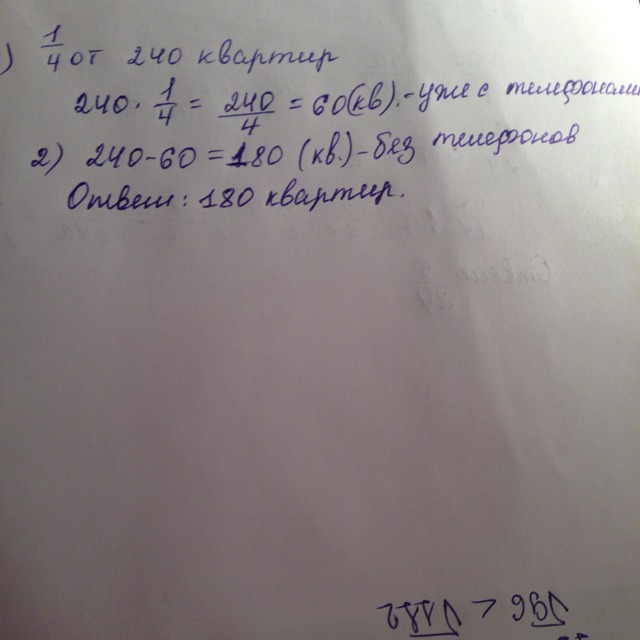 ) 1/4 от 240 квартир
240 · 1/4 = 240/4 = 60 (кв). - уже с телефонами
2) 240 - 60 = 180 (кв.) - без телефонов
Ответ: 180 квартир.